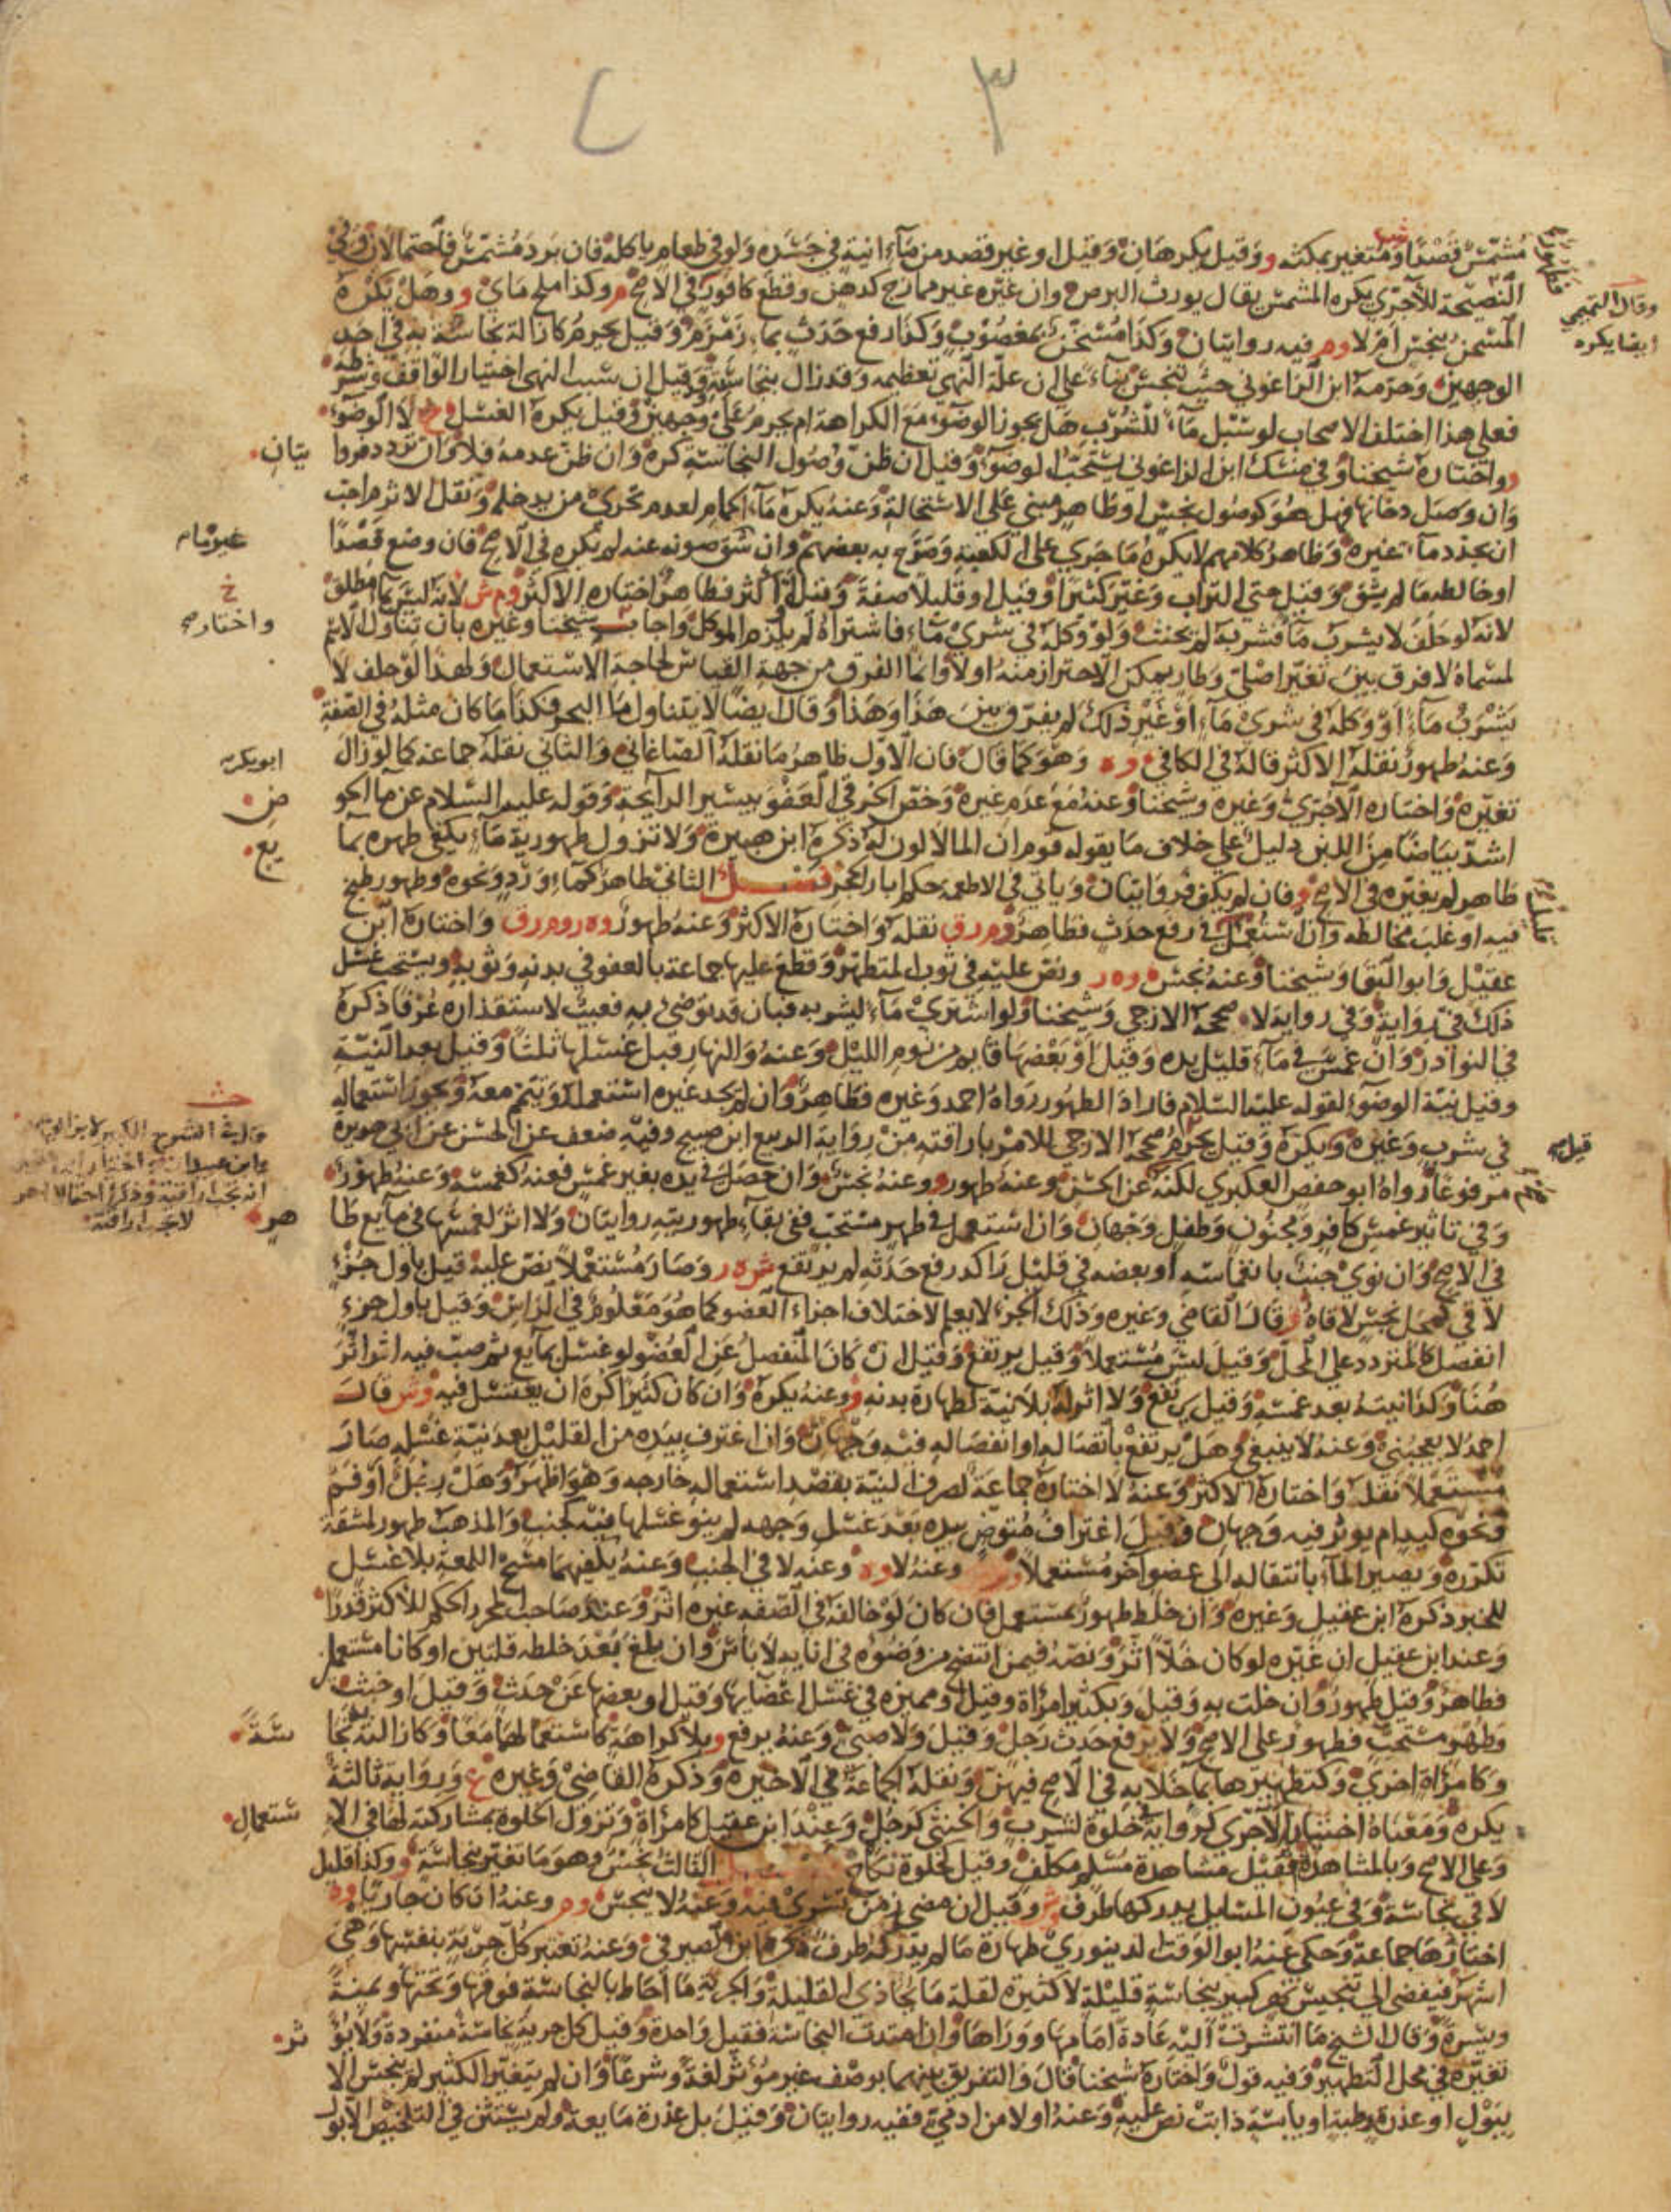 ٣
مشمس قصدا ومتغير بمكثه و وقيل يكرهان وقيل او غير قصد من ماء انية في جسده ولو في طعام ياكله فان برد مشمس فاحتمالان وفي
النصيحة للآجري يكره المشمس يقال يورث البرص وان غيره غير ممازج كدهن وقطع كافور في الاصح م وكذا ملح ماي و وهل يكره
المسخن بنجس ام لا وم فيه روايتان وكذا مسخن بمغصوب وكذا رفع حدث بماء زمزم وقيل يحرم كازالة نجاسة به في احد
الوجهين وحرمه ابن الزاغوني حيث تنجس بناء على ان علة النهي تعظيمه وقد زال بنجاسته وقيل ان سبب النهي اختيار الواقف وشرطه
فعلى هذا اختلف الاصحاب لو سبل ماء للشرب هل يجوز الوضوء مع الكراهة ام يحرم على وجهين وقيل يكره الغسل لا الوضوء
واختاره شيخنا وفي منسك ابن الزاغوني يستحب الوضوء وقيل ان ظن وصول النجاسة كره وان ظن عدمه فلا وان تردد فروا يتان
وان وصل دخانها فهل هو كوصول نجس او طاهر مبني على الاستحالة وعنه يكره ماء الحمام لعدم تحري من يدخله ونقل الاثرم احب
ان يجدد ماء غيره وظاهر كلامهم لا يكره ما جرى على الكعبة وصرح به بعضهم وان شق صونه عنه لم يكره في الاصح فان وضع قصدا
او خالطه ما لم يشق وقيل حتى التراب وغير كثيرا وقيل او قليلا صفة وقيل او اكثر فطاهر اختاره الاكثر وم ش لانه ليس بماء مطلق
لانه لو حلف لا يشرب ماء فشربه لم يحنث ولو وكله في شرى ماء فاشتراه لم يلزم الموكل واجاب شيخنا وغيره بان تناول الاسم
لمسماه لا فرق بين تغير اصلي وطار يمكن الاحتراز منه اولا وانما الفرق من جهة القياس لحاجة الاستعمال ولهذا لو حلف لا
يشرب ماء او وكله في شرى ماء او غير ذلك لم يفرق بين هذا وهذا وقال ايضا لا يتناول ماء البحر فكذا ما كان مثله في الصفة
وعنه طهور نقله الاكثر قاله في الكافي وه وهو كما قال فان الاول ظاهر ما نقله الصاغاني والثاني نقله جماعة كما لو زال
تغيره واختاره الآجري وغيره وشيخنا وعنه مع عدم غيره وخص الخرقي العفو بيسير الرايحة وقوله عليه السلام عن ماء الحو ض
اشد بياضا من اللبن دليل على خلاف ما يقوله قوم ان الماء لا لون له ذكره ابن هبيرة ولا تزول طهورية ماء يكفي طهره بما يع
طاهر لم يغيره في الاصح و فان لم يكف فروايتان وياتي في الاطعمة حكم ابار الحجر فصل الثاني طاهر كماء ورد ونحوه وطهور طبخ
فيه او غلب مخالطه وان استعمل في رفع حدث فطاهر وم ر ق نقله واختاره الاكثر وعنه طهور وه ر وم ر ق واختاره ابن
عقيل وابو البقا وشيخنا وعنه نجس وه ر ونص عليه في ثوب المتطهر وقطع عليها جماعة بالعفو في بدنه وثوبه ويستحب غسل
ذلك في رواية وفي رواية لا صححه الازجي وشيخنا ولو اشترى ماء ليشربه فبان قد توضئ به فعيب لاستقذاره عرفا ذكره
في النوادر وان غمس في ماء قليل يده وقيل او بعضها قايم من نوم الليل وعنه والنهار قبل غسلها ثلثا وقيل بعد النية
وقيل نية الوضوء لقوله عليه السلام فاراد الطهور رواه احمد وغيره فطاهر وان لم يجد غيره استعمله وتيمم معه ويجوز استعماله
في شرب وغيره ويكره وقيل يحرم صححه الازجي للامر باراقته من رواية الربيع ابن صبيح وفيه ضعف عن الحسن عن ابي هريرة
مرفوعا رواه ابو حفص العكبري لكنه عن الحسن وعنه طهور و وعنه نجس وان حصل في يده بغير غمس فعنه كغمسه وعنه طهور
وفي تاثير غمس كافر ومجنون وطفل وجهان وان استعمل في طهر مستحب ففي بقاء طهوريته روايتان ولا اثر لغمسها في مايع طا هر
في الاصح وان نوى جنب بانغماسه او بعضه في قليل راكد رفع حدثه لم يرتفع ش ه ر وصار مستعملا نص عليه قيل باول جزء
لاقى كمحل نجس لاقاه و قال القاضي وغيره وذلك الجزء لا يعلم لاختلاف اجزاء العضو كما هو معلوم في الراس وقيل باول جزء
انفصل كالمتردد على المحل وقيل ليس مستعملا وقيل يرتفع وقيل ان كان المنفصل عن العضو لو غسل بمايع ثم صب فيه اثر اثر
هنا وكذا نيته بعد غمسه وقيل يرتفع ولا اثر له بلا نية لطهارة بدنه و وعنه يكره وان كان كثيرا كره ان يغتسل فيه وش قال
احمد لا يعجبني وعنه لا ينبغي وهل يرتفع باتصاله او انفصاله فيه وجهان وان اغترف بيده من القليل بعد نية غسله صار
مستعملا نقله واختاره الاكثر وعنه لا اختاره جماعة لصرف النية بقصد استعماله خارجه وهو اظهر وهل رجل او فم
ونحوه كيد ام يوثر فيه وجهان وقيل اغتراف متوض بيده بعد غسل وجهه لم ينو غسلها فيه كجنب والمذهب طهور لمشقة
تكرره ويصير الماء بانتقاله الى عضو اخر مستعملا وعنه لا وه وعنه لا في الجنب وعنه يكفيهما مسح اللمعة بلا غسل
للخبر ذكره ابن عقيل وغيره وان خلط طهور بمستعمل فان كان لو خالفه في الصفة غيره اثر وعند صاحب المحرر الحكم للاكثر قدرا
وعند ابن عقيل ان غيره لو كان خلا اثر ونصه فيمن انتضح من وضوه في انايه لا باس وان بلغ بعد خلطه قلتين او كانا مستعمل
فطاهر وقيل طهور وان خلت به وقيل وبكثير امراة وقيل او مميزة في غسل اعضايها وقيل او بعضها عن حدث وقيل او خبث
وطهر مستحب فطهور على الاصح ولا يرفع حدث رجل وقيل ولا صبي وعنه يرفع و بلا كراهة كاستعمالهما معا وكازالته نجا سة
وكامراة اخرى وكتطهيرها بما خلا به في الاصح فيهن ونقله الجماعة في الاخيرة وذكره القاضي وغيره ع ورواية ثالثة
يكره ومعناه اختيار الآجري كرواية خلوة لشرب والخنثى كرجل وعند ابن عقيل كامراة وتزول الخلوة بمشاركته لها في الا ستعمال
وعلى الاصح وبالمشاهدة فقيل مشاهدة مسلم مكلف وقيل كخلوة نكاح الثالث نجس وهو ما تغير بنجاسة و وكذا قليل
لاقى نجاسة وفي عيون المسايل يدركها طرف وش وقيل ان مضى زمن تسري فيه وعنه لا ينجس وم وعنه ان كان جاريا وه
اختارها جماعة وحكى عنه ابو الوقت الدينوري طهارة ما لم يدركه طرف ذكره ابن الصيرفي وعنه تعتبر كل جرية بنفسها وهي
اشهر فيفضي الى تنجيس نهر كبير بنجاسة قليلة لا كثيرة لقلة ما يحاذي القليلة والجرية ما احاط بالنجاسة فوقها وتحتها ويمنة
ويسرة وقال الشيخ ما انتشرت اليه عادة امامها ووراها وان امتدت النجاسة فقيل واحدة وقيل كل جرية نجاسة منفردة ولا يؤ ثر
تغيره في محل التطهير وفيه قول واختاره شيخنا قال والتفريق بينهما بوصف غير مؤثر لغة وشرعا وان لم يتغير الكثير لم ينجس الا
ببول او عذرة رطبة او يابسة ذابت نص عليه وعنه اولا من ادمي ففيه روايتان وقيل بل عذرة مايعة ولم يستثن في التلخيص الا بول
وقال التميمي
ايضا يكره
غير تمام
خ
واختار صح
ابو بكر صح
قيل صح
وفي الشرح الكبير
انه تجب اراقته وذكر احتمالا اخر
لا تجب اراقته